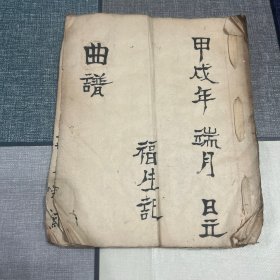 甲戌年 端月 日立
福生記
曲譜